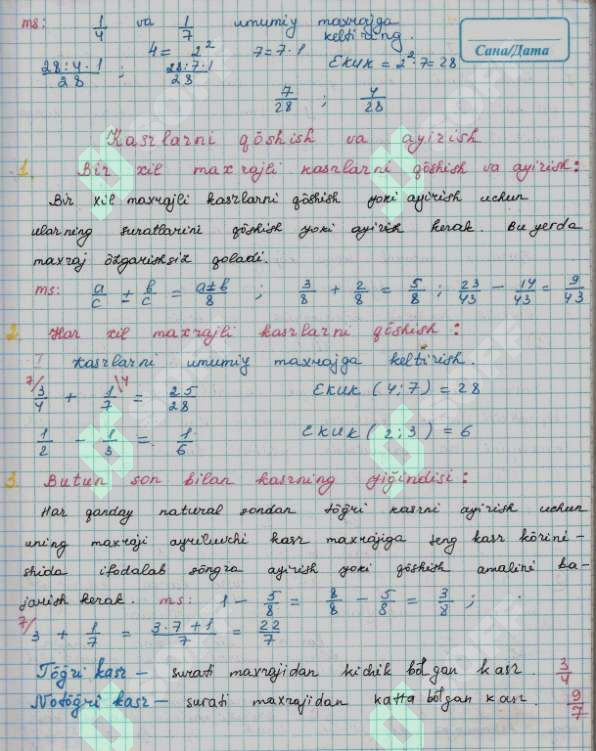 ms: 1/4 va 1/7 umumiy maxrajga
keltiring.
4 = 2² 7 = 7·1
28:4·1/28 ; 28:7·1/28 ЕКИК = 2²·7 = 28
Сана/Дата
7/28 ; 4/28
Kasrlarni qõshish va ayirish
1. Bir xil maxrajli kasrlarni qõshish va ayirish:
Bir xil maxrajli kasrlarni qõshish yoki ayirish uchun
ularning suratlarini qõshish yoki ayirish kerak. Bu yerda
maxraj õzgarishsiz qoladi.
ms: a/c ± b/c = a±b/8 ; 3/8 + 2/8 = 5/8 ; 23/43 − 14/43 = 9/43
2. Har xil maxrajli kasrlarni qõshish:
Kasrlarni umumiy maxrajga keltirish.
7/ 3/4 + 1/7 \4 = 25/28 ЕКИК (4;7) = 28
1/2 − 1/3 = 1/6 ЕКИК (2;3) = 6
3. Butun son bilan kasrning yiğindisi:
Har qanday natural sondan tõğri kasrni ayirish uchun
uning maxraji ayriluvchi kasr maxrajiga teng kasr kõrini-
shida ifodalab sõngra ayirish yoki qõshish amalini ba-
jarish kerak. ms: 1 − 5/8 = 8/8 − 5/8 = 3/8 ;
7/ 3 + 1/7 = 3·7+1/7 = 22/7
Tõğri kasr — surati maxrajidan kichik bõlgan kasr. 3/4
Notõğri kasr — surati maxrajidan katta bõlgan kasr. 9/7